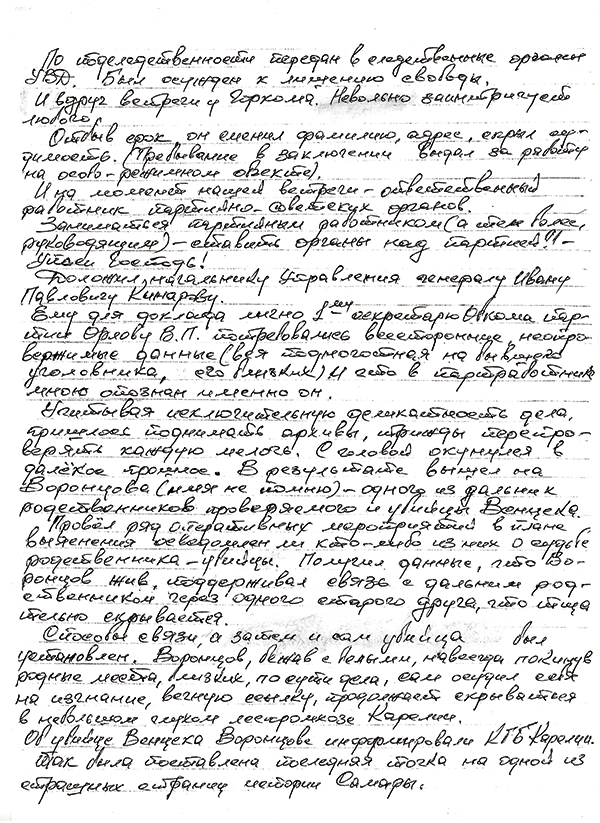 По подследственности передан в следственные органы
УВД. Был осужден к лишению свободы.
И вдруг встреча у Горкома. Невольно заинтригует
любого.
Отбыв срок он сменил фамилию, адрес, скрыл су-
димость. (Пребывание в заключении выдал за работу
на особо-режимном объекте).
И на момент нашей встречи - ответственный
работник партийно-советских органов.
Заниматься партийным работником (а тем более,
руководящим) - ставить органы над партией?! -
Упаси Господь!
Доложил начальнику Управления генералу Ивану
Павловичу Кинарову.
Ему для доклада лично 1му секретарю Обкома пар-
тии Орлову В.П. потребовались всесторонние неопро-
вержимые данные (вся подноготная на бывшего
уголовника, его близких) и что в партработнике
мною опознан именно он.
Учитывая исключительную деликатность дела,
пришлось поднимать архивы, трижды перепро-
верять каждую мелочь. С головой окунулся в
далёкое прошлое. В результате вышел на
Воронцова (имя не помню) - одного из дальних
родственников проверяемого и убийцы Венцека.
Провёл ряд оперативных мероприятий в плане
выяснения осведомлен ли кто-либо из них о судьбе
родственника - убийцы. Получил данные, что Во-
ронцов жив, поддерживал связь с дальним род-
ственником через одного старого друга, что тща
тельно скрывается.
Способы связи, а затем и сам убийца был
установлен. Воронцов, бежав с белыми, навсегда покинув
родные места, близких, по сути дела, сам осудил себя
на изгнание, вечную ссылку, продолжает скрываться
в небольшом глухом леспромхозе Карелии.
Об убийце Венцека Воронцове информировали КГБ Карелии.
Так была поставлена последняя точка на одной из
страшных страниц истории Самары.